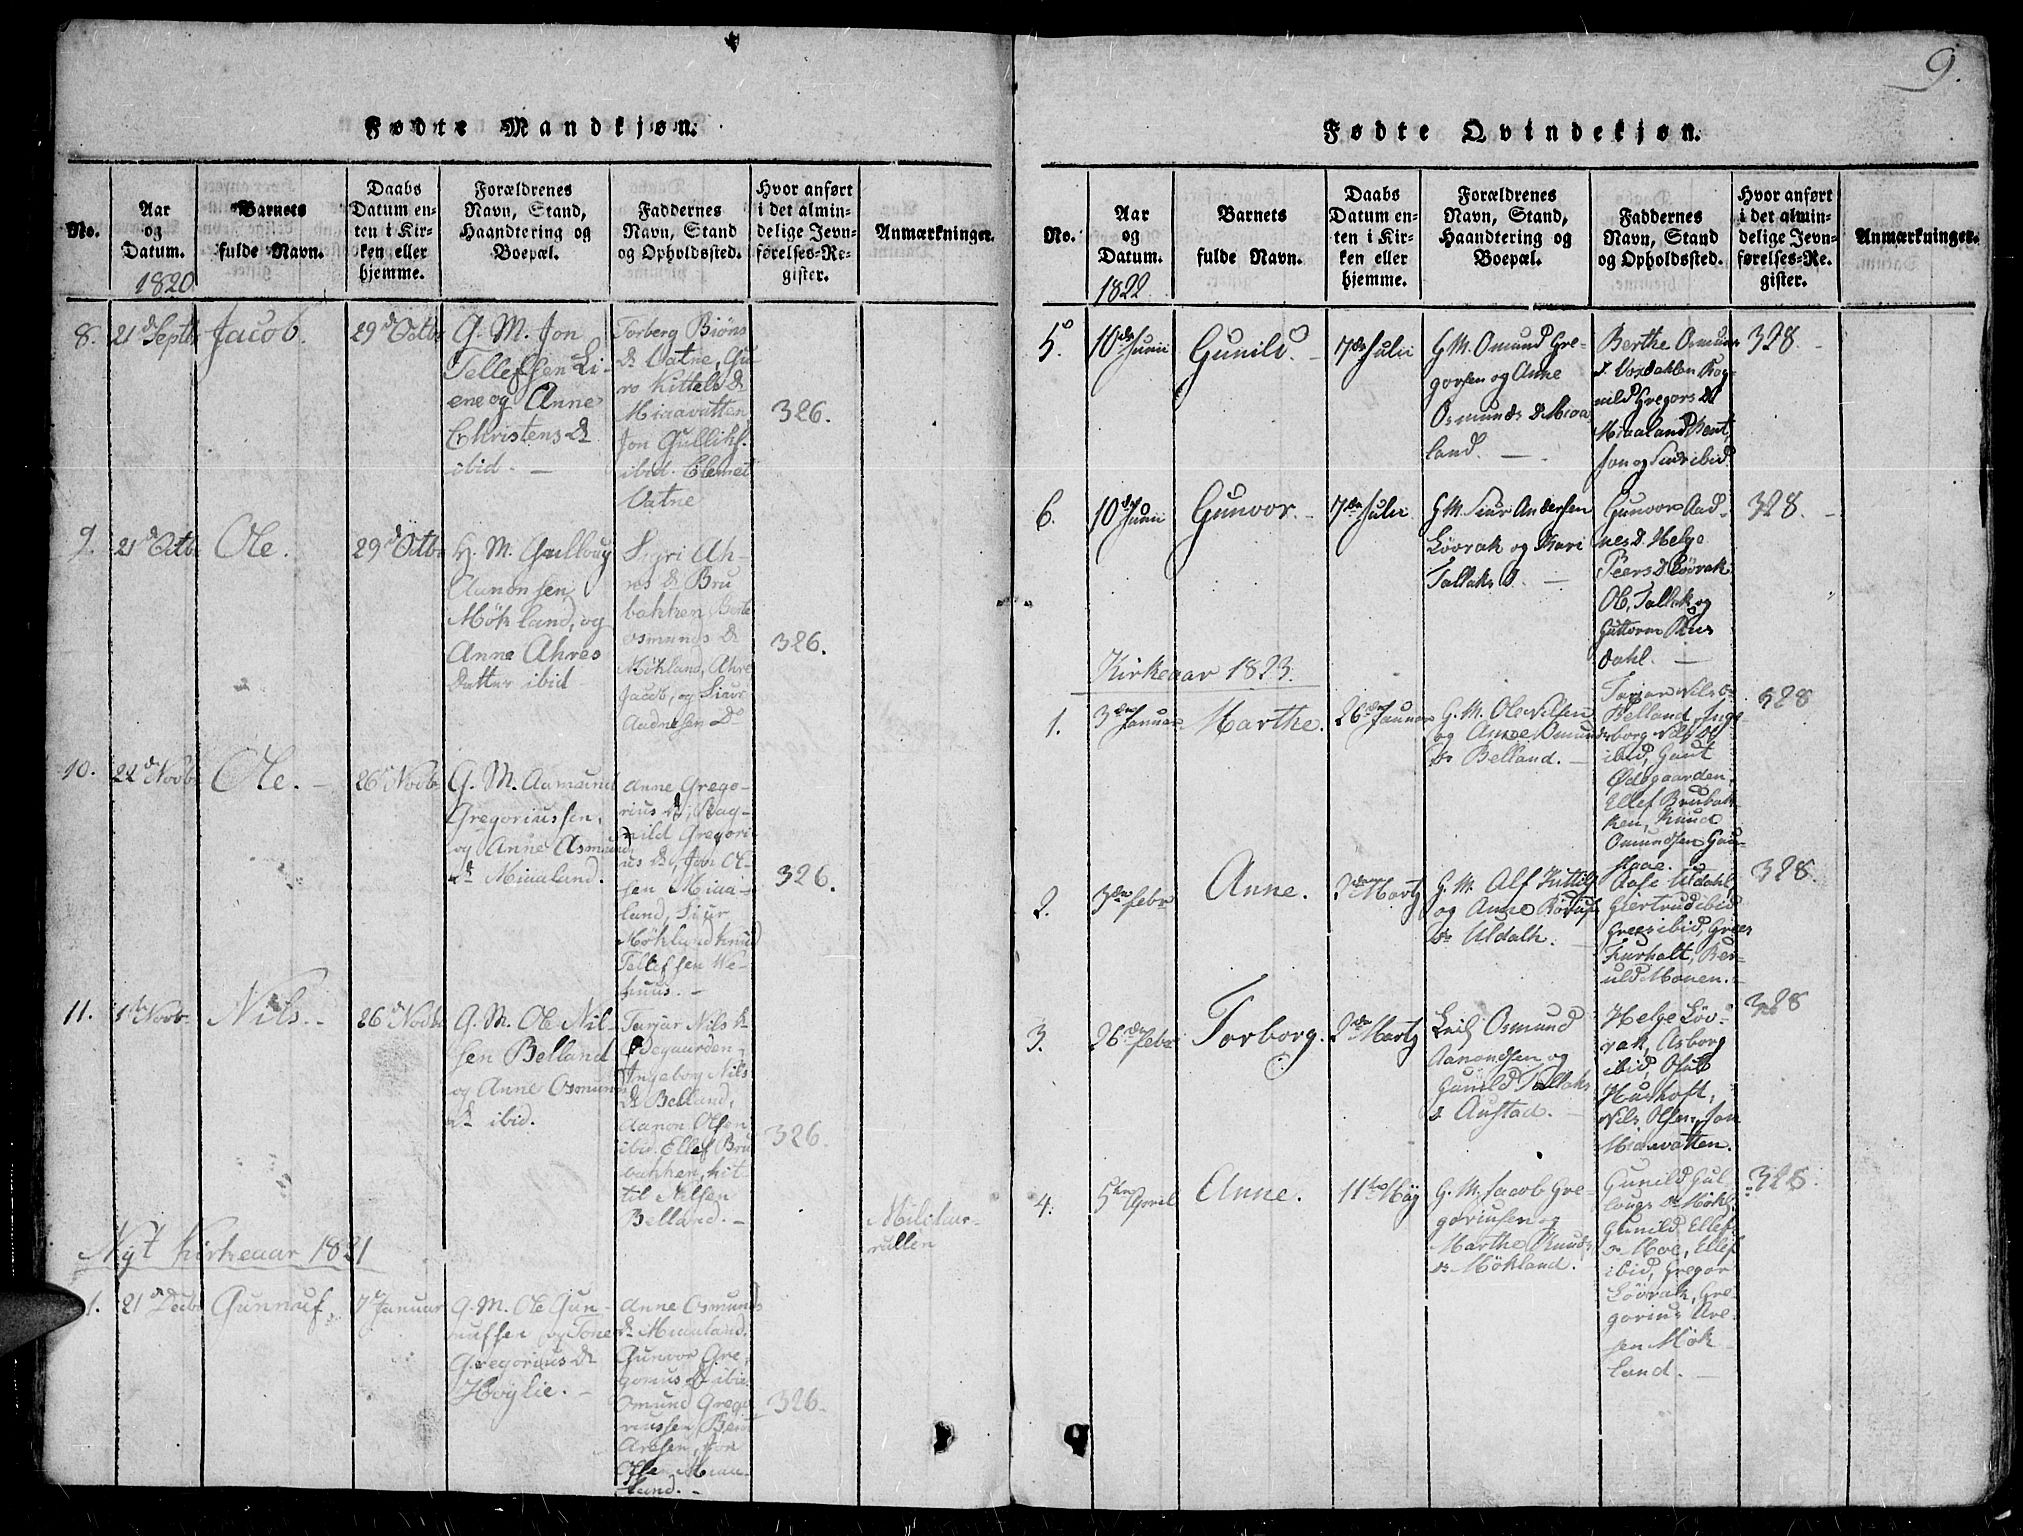 Fødte Mandkjøn.
No.
Aar
og
Datum.
1820
Barnets
fulde Navn.
Daabs
Datum en-
ten i Kir-
ken eller
hjemme.
Forældrenes
Navn, Stand,
Haandtering og
Boepæl.
Faddernes
Navn, Stand
og Opholdssted.
Hvor anført
i det almin-
delige Jevn-
førelses-Re-
gister.
Anmærkninger.
8.
21d Septbr
Jacob.
29d Octbr
G. M. Jon
Tellefsen Li-
ene og Anne
Christens D
ibid. —
Torberg Biøns
D Vatne, Gu
ro Kittels D
Miaavatten
Jon Gulliks.
ibid. Clemet
Vatne
326.
9.
21d Octbr
Ole.
29d Octbr
G. M. Gulloug
Aanonsen
Møkland, og
Anne Ahres
datter ibid
Sigri Ah-
res D Bru
bakken, Berte
Osmunds D
Møkland, Ahre
Jacob, og Siur
Aadnesen D
326.
10.
22d Novbr
Ole. —
26d Novbr
G. M. Aamund
Gregoriussen,
og Anne Asmund
D Miaaland.
Anne Grego-
rius D, Rag-
nild Gregori-
us D, Jon Ol-
sen Miaa-
land, Siur
Møkland Knud
Tellefsen We-
huus. —
326.
11.
1ste Novbr
Nils. -
26d Novbr
G. M. Ole Nil-
sen Belland
og Anne Osmunds
D ibid.
Tarjar Nils D
Ødegaarden
Ingebog Nils
D Belland,
Aanon Olsen
ibid. Ellef Bru
bakken, Kit
til Nilsen
Belland. —
326.
Militær-
rullen
Nyt Kirkeaar 1821
1.
21d Decbr
Gunnuf.
7d Januar
G. M. Ole Gun-
nufsen og Tone
Gregorius D
Høylie. —
Anne Osmunds
D Miaaland.
Gunvor Gre-
gorius D ibid
Osmund Grego
riussen Bent
Aresen, Jon
Olsen Miaa-
land. —
326.
9.
Fødte Qvindekjøn.
No.
Aar
og
Datum.
1822
Barnets
fulde Navn.
Daabs
Datum en-
ten i Kir-
ken eller
hjemme.
Forældrenes
Navn, Stand,
Haandtering og
Boepæl.
Faddernes
Navn, Stand
og Opholdssted.
Hvor anført
i det almin-
delige Jevn-
førelses-Re-
gister.
Anmærkninger.
5.
10de Junii
Gunild. —
7de Julii
G. M. Omund Gre-
gorsen og Anne
Osmunds D Miaa
land. —
Berthe Osmun
D. Rag-
nild Gregors D
Miaaland Bent
Jon og Siur ibid
328.
6.
10de Junii
Gunvor. -
7de Julii
G M. Siur Andersen
Løvrak og Kari
Tallaks D. —
Gunvor Aad-
nes D. Helge
Peers D Løvrak
Ol, Tallak og
Guttorm Rus
dahl. —
328. -
Kirkeaar 1823.
1.
3de Januar
Marthe.
26de Januar
G. M. Ole Nilsen
og Anne Omunds
D Belland. —
Tarjar Nils D
Belland, Inge
borg Nils D
ibid, Gaut
Ødegaarden,
Ellef Brubak-
ken, Knud
Omundsen Gau-
staae. —
328
2.
3de Febr
Anne.
2den Martz
G. M. Alf Kittils
og Anne
D Uldalh. —
Aase Uldahl,
Giertrud ibid
Grees ibid, Grees
Kurholt, Ber-
uld Monen. -
328.
3.
26de Febr
Torborg.
2de Martz
Osmund
Aanondsen og
Gunild Tallaks
D Austad. —
Helge Løv-
rak, Asborg
ibid, Osul
Hushoft,
Nils Olsen, Jon
Miaevatten.
328
4.
5te April
Anne.
11te May
G. M. Jacob Gre-
goriusen og
Marthe Knuds
D Møkland.
Gunild Gul
lougs D Møkl.
Gunild Ellef
D Moe, Ellef
ibid, Gregor
Løvrak, Gre-
gorius Are-
sen Møk
land. —
328.